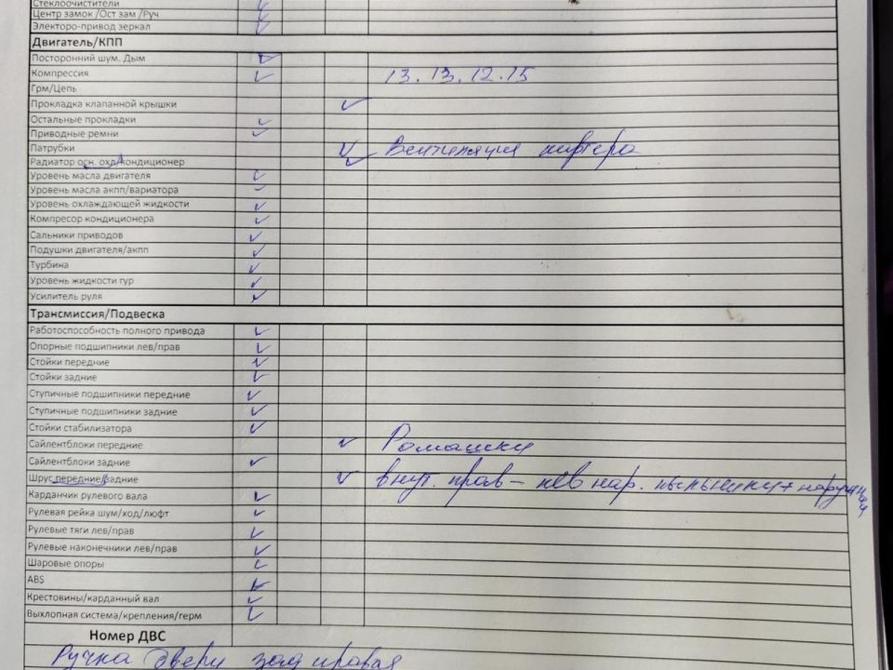 Стеклоочистители
Центр замок /Ост зам /Руч
Электро-привод зеркал
Двигатель/КПП
Посторонний шум. Дым
Компрессия 13. 13. 12. 15
Грм/Цепь
Прокладка клапанной крышки
Остальные прокладки
Приводные ремни
Патрубки Вентиляция картера
Радиатор осн. охл/кондиционер
Уровень масла двигателя
Уровень масла акпп/вариатора
Уровень охлаждающей жидкости
Компресор кондиционера
Сальники приводов
Подушки двигателя/акпп
Турбина
Уровень жидкости гур
Усилитель руля
Трансмиссия/Подвеска
Работоспособность полного привода
Опорные подшипники лев/прав
Стойки передние
Стойки задние
Ступичные подшипники передние
Ступичные подшипники задние
Стойки стабилизатора
Сайлентблоки передние Ромашки
Сайлентблоки задние
Шрус передние/задние внут. прав – лев нар. пыльники +
Карданчик рулевого вала
Рулевая рейка шум/ход/люфт
Рулевые тяги лев/прав
Рулевые наконечники лев/прав
Шаровые опоры
ABS
Крестовины/карданный вал
Выхлопная система/крепления/герм
Номер ДВС
Ручка двери зад правая